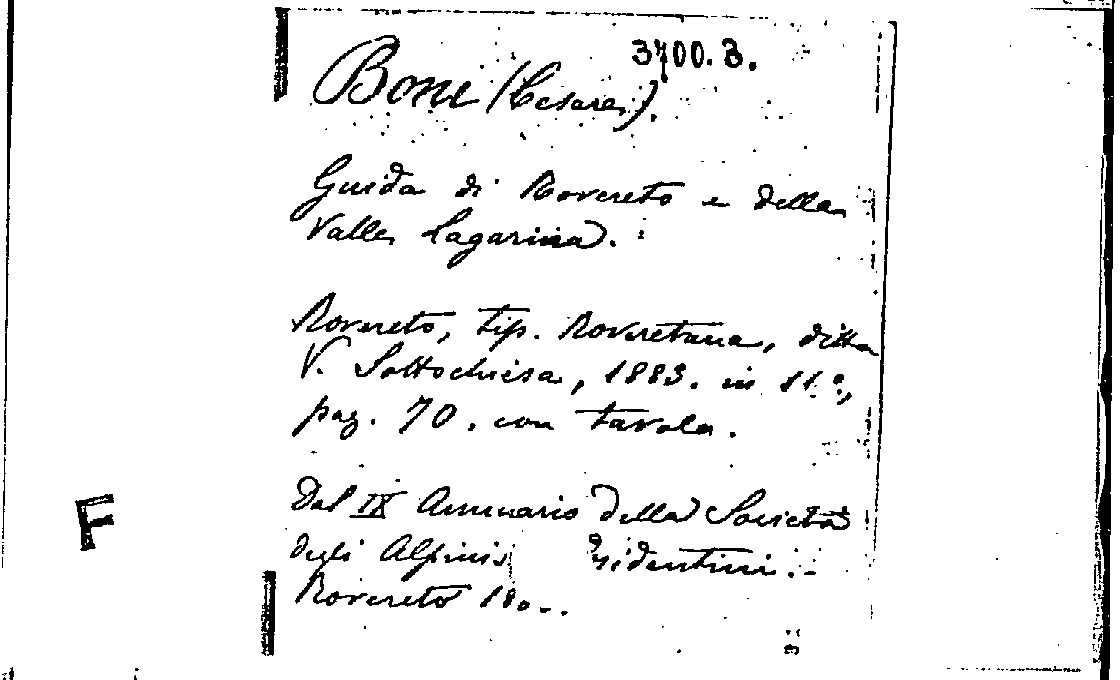 3700. 3.
Boni (Cesare).
Guida di Rovereto e della
Valle Lagarina.
Rovereto, tip. Roveretana, ditta
V. Sottochiesa, 1883. in
pag. 70. con tavola.
F
Dal IX Annuario della Società
degli Alpinis Tridentini.
Rovereto